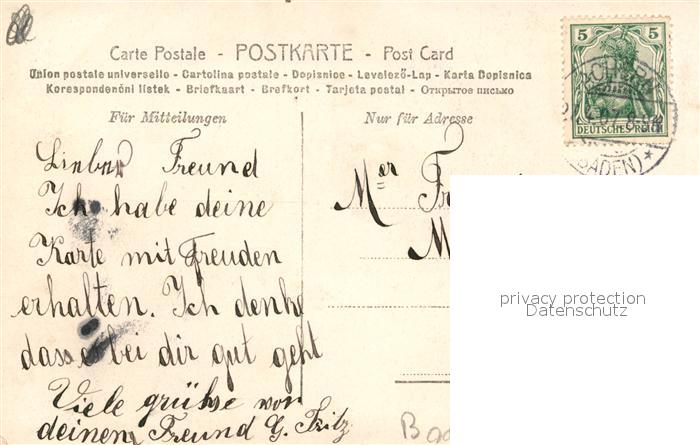 Carte Postale - POSTKARTE - Post Card
Union postale universelle - Cartolina postale - Dopisnice - Levelező-Lap - Karta Dopisnica
Korespondenční lístek - Briefkaart - Brefkort - Tarjeta postal - Открытое письмо
Für Mitteilungen
Nur für Adresse
5 5
DEUTSCHES REICH
(BADEN)
Lieber Freund
Ich habe deine
Karte mit Freuden
erhalten. Ich denke
dass es bei dir gut geht
Viele grühse von
deinem Freund G. Fritz
Mer
privacy protection
Datenschutz